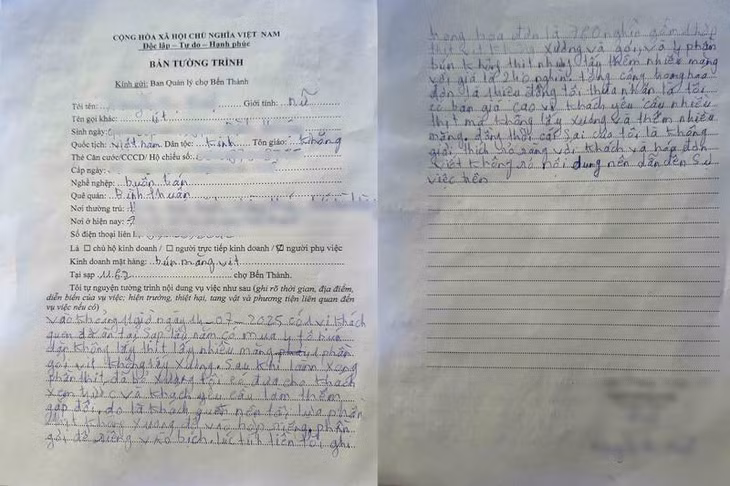 CỘNG HÒA XÃ HỘI CHỦ NGHĨA VIỆT NAM
Độc lập – Tự do – Hạnh phúc
BẢN TƯỜNG TRÌNH
Kính gửi: Ban Quản lý chợ Bến Thành
Tôi tên: Giới tính: nữ
Tên gọi khác: út
Sinh ngày:
Quốc tịch: việt nam Dân tộc: kinh Tôn giáo: không
Thẻ Căn cước/CCCD/ Hộ chiếu số:
Cấp ngày:
Nghề nghiệp: buôn bán
Quê quán: Bình thuận
Nơi thường trú:
Nơi ở hiện nay:
Số điện thoại liên
Là ☐ chủ hộ kinh doanh / ☐ người trực tiếp kinh doanh / ☑ người phụ việc
Kinh doanh mặt hàng: bún măng vịt
Tại sạp 1162 chợ Bến Thành.
Tôi tự nguyện tường trình nội dung vụ việc như sau (ghi rõ thời gian, địa điểm,
diễn biến của vụ việc; hiện trường, thiệt hại, tang vật và phương tiện liên quan đến
vụ việc nếu có)
vào khoảng 11 giờ ngày 14-07-2025 có 1 vị khách
quen đã ăn tại sạp lâu năm có mua 4 tô bún
dặn không lấy thịt lấy nhiều măng 1 phần
gỏi vịt không lấy xương. Sau khi làm xong
phần thịt đã bỏ xương tôi có đưa cho khách
xem trước và khách yêu cầu làm thêm
gấp đôi, do là khách quen nên tôi lựa phần
thịt không xương để vào hộp riêng, phần
gỏi để riêng vào bịch. lúc tính tiền tôi ghi
trong hóa đơn là 760 nghìn gồm 1 hộp
thịt vịt không xương và gỏi, và 4 phần
bún không thịt nhưng lấy thêm nhiều măng
với giá là 240 nghìn. tổng cộng trong hóa
đơn là 1 triệu đồng tôi thừa nhận là tôi
có bán giá cao vì khách yêu cầu nhiều
thịt mà không lấy xương và thêm nhiều
măng. đồng thời cái sai của tôi là không
giải thích rõ ràng với khách và hóa đơn
viết không có nội dung nên dẫn đến sự
việc trên